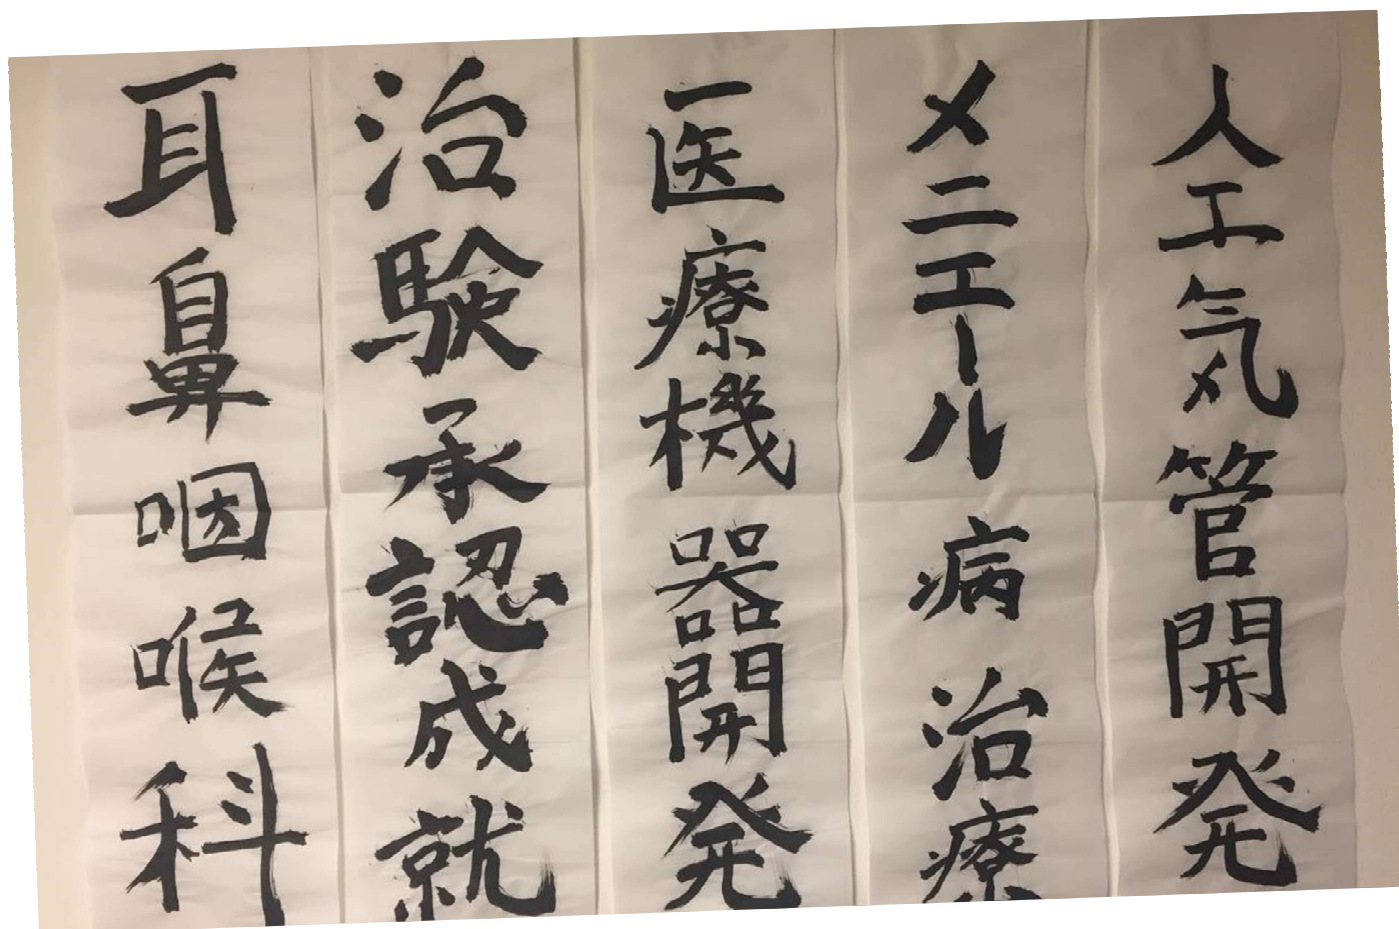 人工気管開発
メニエール病治療
医療機器開発
治験承認成就
耳鼻咽喉科